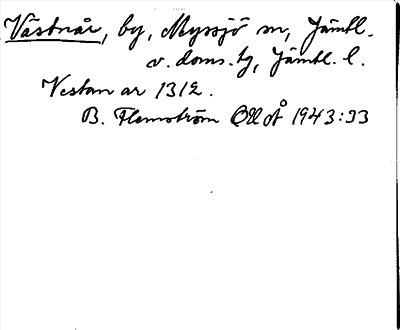 Västnår, by, Myssjö sn, Jämtl.
v. doms. tg, Jämtl. l.
Vestan ar 1312.
B. Flemström OUoÅ 1943:33